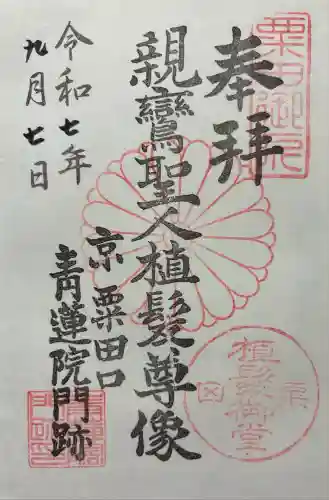 奉拝
親鸞聖人植髪尊像
京粟田口
青蓮院門跡
令和七年
九月七日
粟田御所
植髪御堂